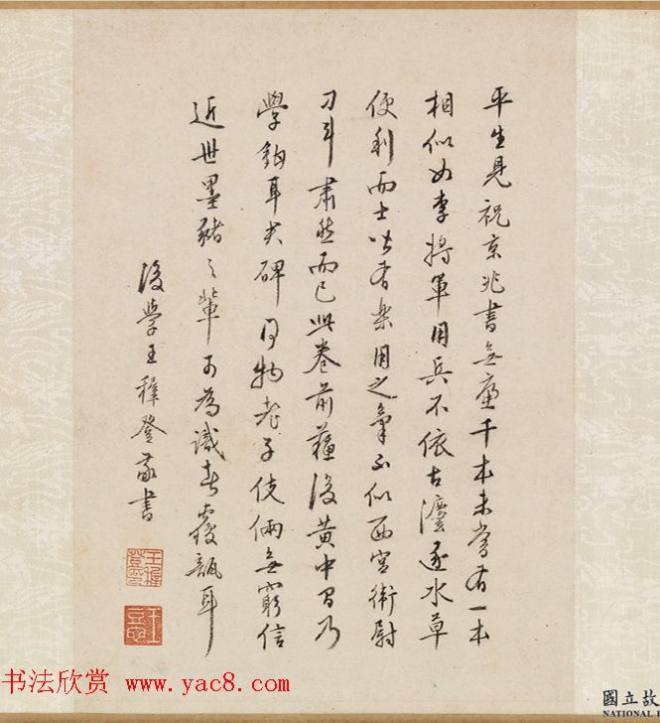 平生見祝京兆書無慮千本未嘗有一本
相似如李將軍用兵不依古灋逐水草
便利而士皆有樂用之氣不似西宮衛尉
刁斗肅然而已此卷前蘓後黃中間乃
學鈎耳其碑同物老子伎倆無窮信
近世墨豬之輩可為識者發覆瓿耳
後學王穉登敬書
王穉登印
书法欣赏 www.yac8.com
國立故
NATIONAL